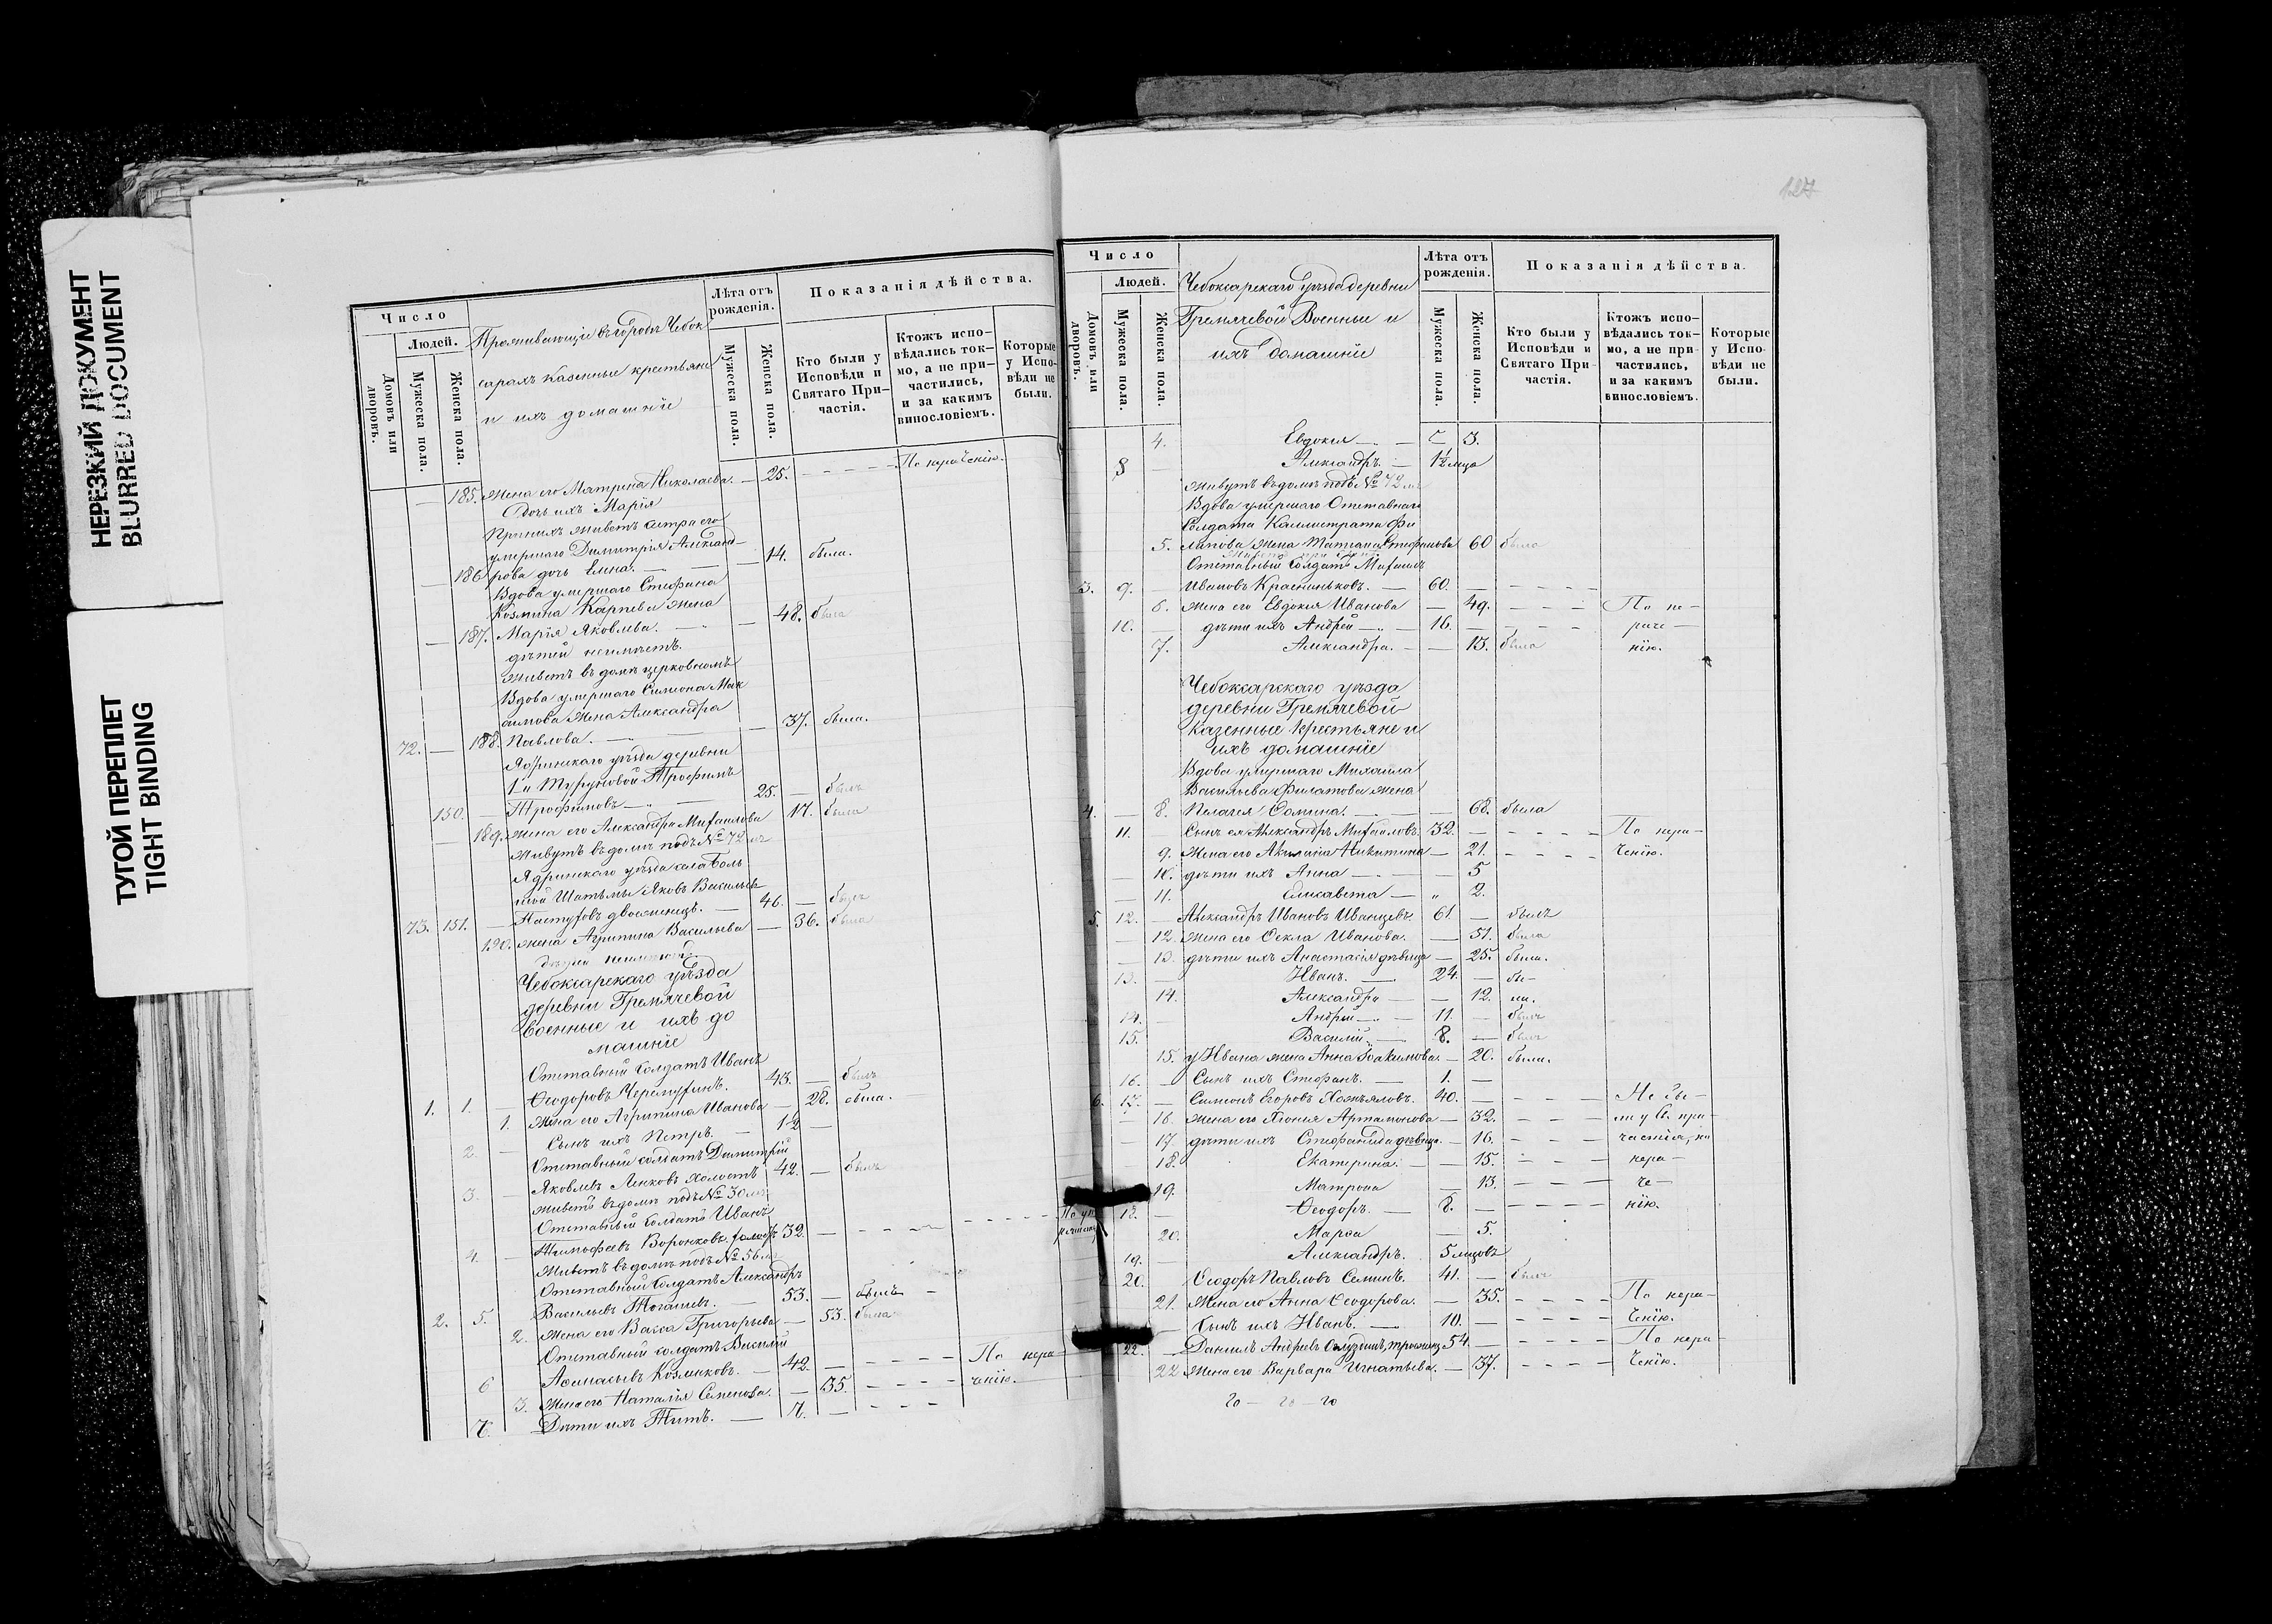 НЕРЕЗКИЙ ДОКУМЕНТ
BLURRED DOCUMENT
ТУГОЙ ПЕРЕПЛЕТ
TIGHT BINDING
Число
Людей.
Домовъ или дворовъ.
Мужеска пола.
Женска пола.
Проживающіе въ городѣ Чебок
сарахъ казенные крестьяне
и ихъ домашніе
Лѣта отъ рожденія.
Мужеска пола.
Женска пола.
Показанія дѣйства.
Кто были у Исповѣди и Святаго При-частія.
Ктожъ испо-вѣдались ток-мо, а не при-частились, и за какимъ винословіемъ.
Которые у Испо-вѣди не были.
— 185. Жена его Матрена Николаева. — 25. - - - - По нерачѣнію.
Дочь ихъ Марія
При нихъ живетъ сестра его
умершаго Димитрія Александ-
— 186. рова дочь Елена. — — 14. была.
Вдова умершаго Стефана
Козмина Карпева жена
— 187. Марія Яковлева. — — 48. была
дѣтей неимѣетъ.
Живетъ въ домѣ церковномъ
Вдова умершаго Симеона Мак
симова жена Александра
72. — 188. Павлова. — — 37. была.
Ядринскаго уѣзда деревни
1й Туруновой Трофимъ
150. — Трофимовъ — 25. — былъ
— 189. Жена его Александра Михаилова 17. была
Живутъ въ домѣ подъ № 72мъ
Ядринскаго уѣзда села Боль
шой Шатьмы Яковъ Васильевъ
73. 151. — Пастуховъ двоеженецъ. — 46. — былъ
190. жена Агрипина Васильева — 36. была
дѣтей неимѣютъ.
Чебоксарскаго уѣзда
деревни Гремячевой
военные и ихъ до
машніе
Отставный Солдатъ Иванъ
1. 1. — Ѳеодоровъ Черемухинъ. 43. — былъ
1. Жена его Агрипина Иванова — 28. была.
2. — Сынъ ихъ Петръ. — 1½ —
Отставный солдатъ Димитрій
3. — Яковлевъ Ленковъ холостъ 42. — былъ
живетъ въ домѣ подъ № 30мъ
Отставный Солдатъ Иванъ
4. — Тимофеевъ Воронковъ. холостъ 32. — - - - -
Живетъ въ домѣ подъ № 56мъ
Отставный Солдатъ Александръ
2. 5. Васильевъ Тогаевъ. — 53. — былъ
2. Жена его Васса Григорьева — 53. была
Отставный солдатъ Василій
6 Аѳанасьевъ Козминовъ. — 42. — - - - - По нера-
3. Жена его Наталія Семенова. — 35. - - - - чѣнію.
7. Дѣти ихъ Титъ. — 7. — - - -
127
Число
Людей.
Домовъ или дворовъ.
Мужеска пола.
Женска пола.
Чебоксарскаго Уѣзда деревни
Гремячевой Военные и
ихъ домашніе
Лѣта отъ рожденія.
Мужеска пола.
Женска пола.
Показанія дѣйства.
Кто были у Исповѣди и Святаго При-частія.
Ктожъ испо-вѣдались ток-мо, а не при-частились, и за какимъ винословіемъ.
Которые у Испо-вѣди не были.
4. Евдокія — 3.
8 — Александръ. — 1½ мца
Живутъ въ домѣ подъ № 72мъ
Вдова умершаго Отставнаго
Солдата Каллистрата Фи
5. липова жена Татіана Стефанова 60 была
Отставный Солдатъ Михаилъ
3. 9. — Ивановъ Красильниковъ. — 60. — - - - -
6. жена его Евдокія Иванова — 49. - - - По не-
10. — дѣти ихъ Андрей — 16. - - - раче-
7. Александра. — — 13. была нію.
Чебоксарскаго уѣзда
деревни Гремячевой
казенные крестьяне и
ихъ домашніе
Вдова умершаго Михаила
Васильева Филатова жена
4. — 8. Пелагея Сомина. — — 68. была
11. — Сынъ ея Александръ Михаиловъ. 32. — - - - - По нера-
9. Жена его Акилина Никитина — 21. - - - - чѣнію.
— 10. дѣти ихъ Анна — — 5
— 11. Елисавета — „ 2.
5. 12. — Александръ Ивановъ Иванцевъ. 61. — былъ
— 12. Жена его Ѳекла Иванова. — 51. была
— 13. дѣти ихъ Анастасія дѣвица — 25. была.
13. — Иванъ. — 24. — бы-
14. Александра — — 12. ли.
14. — Андрей — 11. — былъ
15. Василій. — 8. — былъ
15. у Ивана жена Анна Іоакимова. — 20. была.
16. — Сынъ ихъ Стефанъ. — 1. —
6. 17. — Симеонъ Егоровъ Хожяловъ. 40. — - - - - Не бы-
— 16. Жена его Хіонія Артамонова — 32. - - - ли у С. при-
— 17. дѣти ихъ Стефанида дѣвица. — 16. - - - частія, по
— 18. Екатерина. — — 15. - - - нера-
19. Матрона — 13. - - - че-
18. — Ѳеодоръ. — 8. — - - - - нію.
20. Марѳа — 5.
19. — Александръ. 5 мцовъ
20. Ѳеодоръ Павловъ Семинъ. 41. — былъ
21. Жена его Анна Ѳеодорова. — 35. - - - - По нера-
Сынъ ихъ Иванъ. — 10. — - - - - чѣнію.
22. — Даніилъ Андреевъ 54. — - - - - По нера-
22 Жена его Варвара Игнатьева. — 37. - - - - чѣнію.
20 — 20 — 20